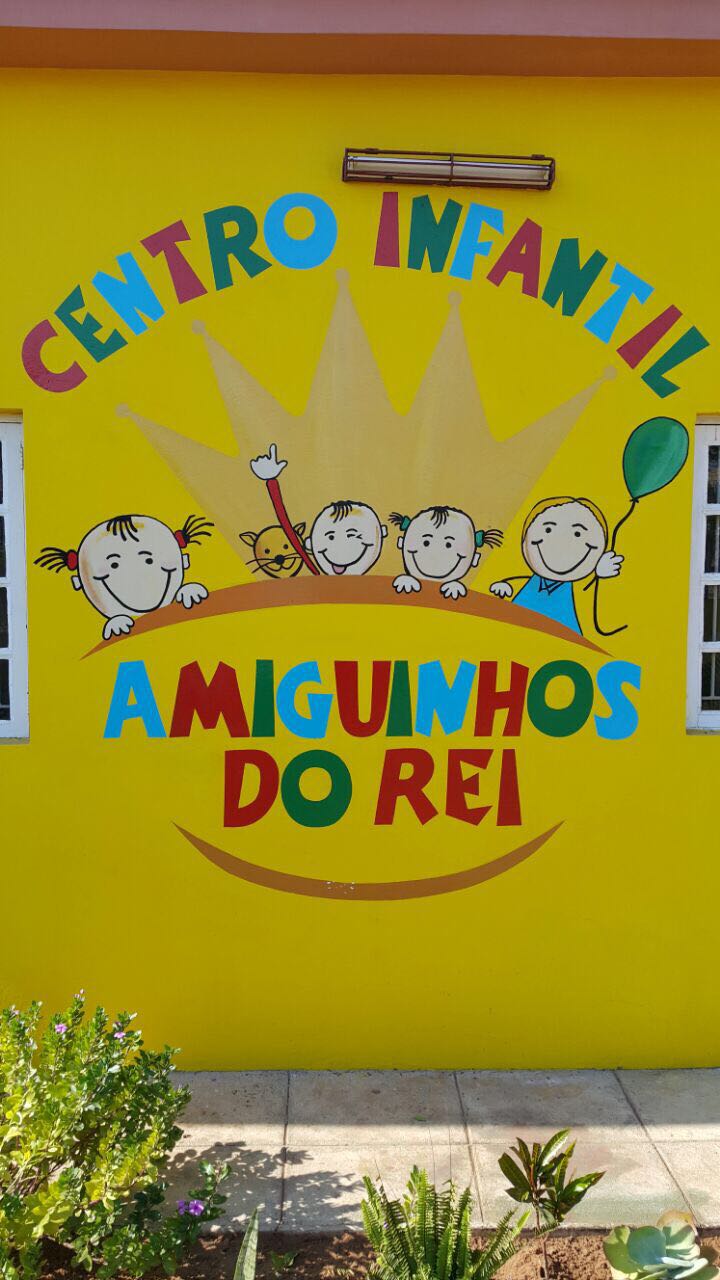 CENTRO INFANTIL
AMIGUINHOS
DO REI